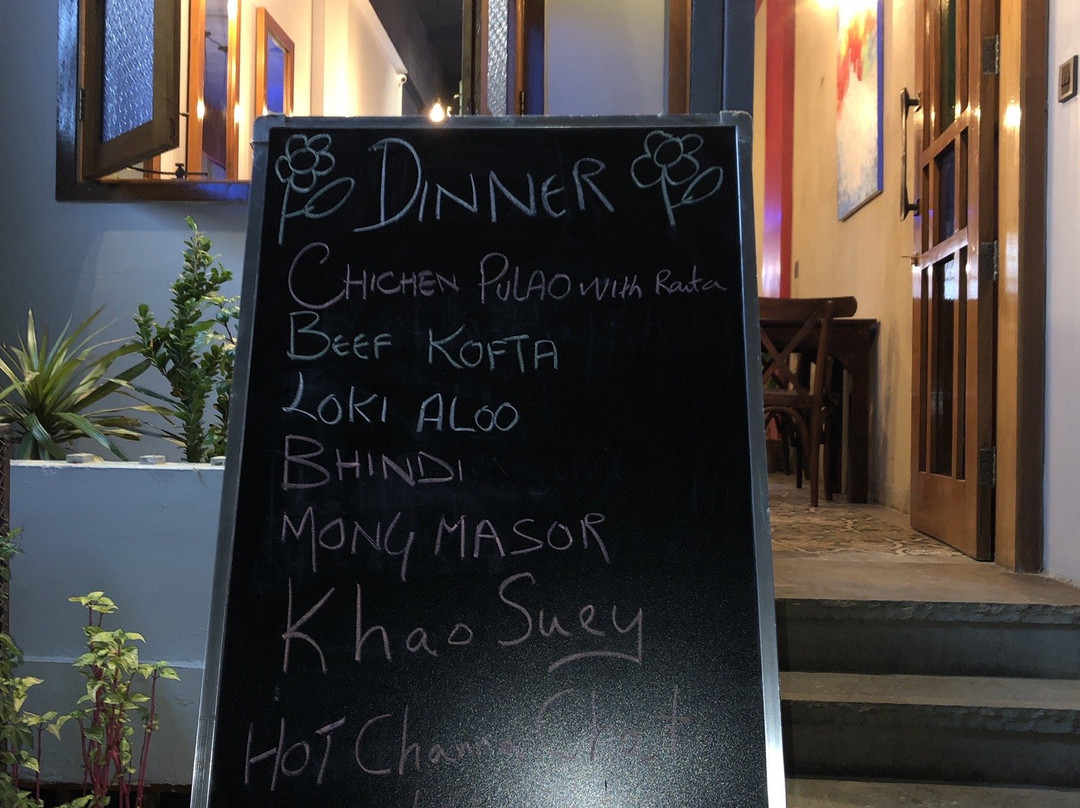 DINNER
CHICHEN PULAO with Raita
BEEF KOFTA
LOKI ALOO
BHINDI
MONG MASOR
Khao Suey
HOT Channa Chat